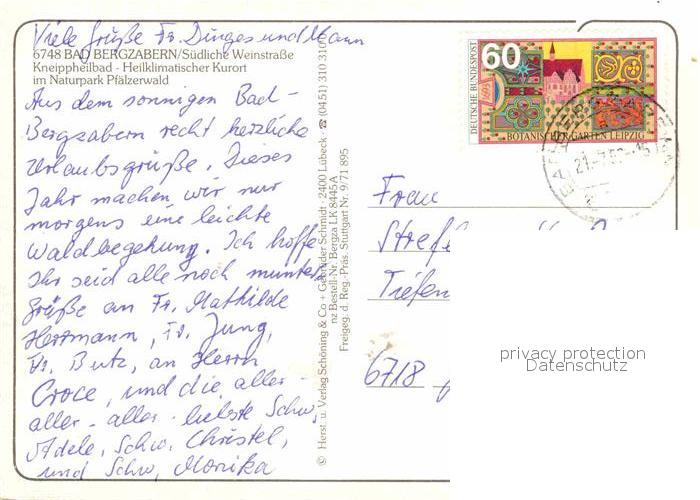 Viele Grüße Fr. Dinges und Mann
6748 BAD BERGZABERN/Südliche Weinstraße
Kneippheilbad - Heilklimatischer Kurort
im Naturpark Pfälzerwald
Aus dem sonnigen Bad-
Bergzabern recht herzliche
Urlaubsgrüße. Dieses
Jahr machen wir nur
morgens eine leichte
Waldbegehung. Ich hoffe
Ihr seid alle noch munter.
Grüße an Fr. Mathilde
Herrmann, Fr. Jung,
Fr. Butz, an Herrn
Croce, und die aller-
aller-aller-liebste Schw.
Adele, Schw. Christel,
und Schw. Monika
© Herst. u. Verlag Schöning & Co + Gebrüder Schmidt · 2400 Lübeck · ☎ (0451) 310 310
nz Bestell-Nr. Bergza LK 8445A
Freigeg. d. Reg.-Präs. Stuttgart Nr. 9/71 895
60
DEUTSCHE BUNDESPOST
1595
BOTANISCHER GARTEN LEIPZIG
Frau
Tiefen
6718
privacy protection
Datenschutz